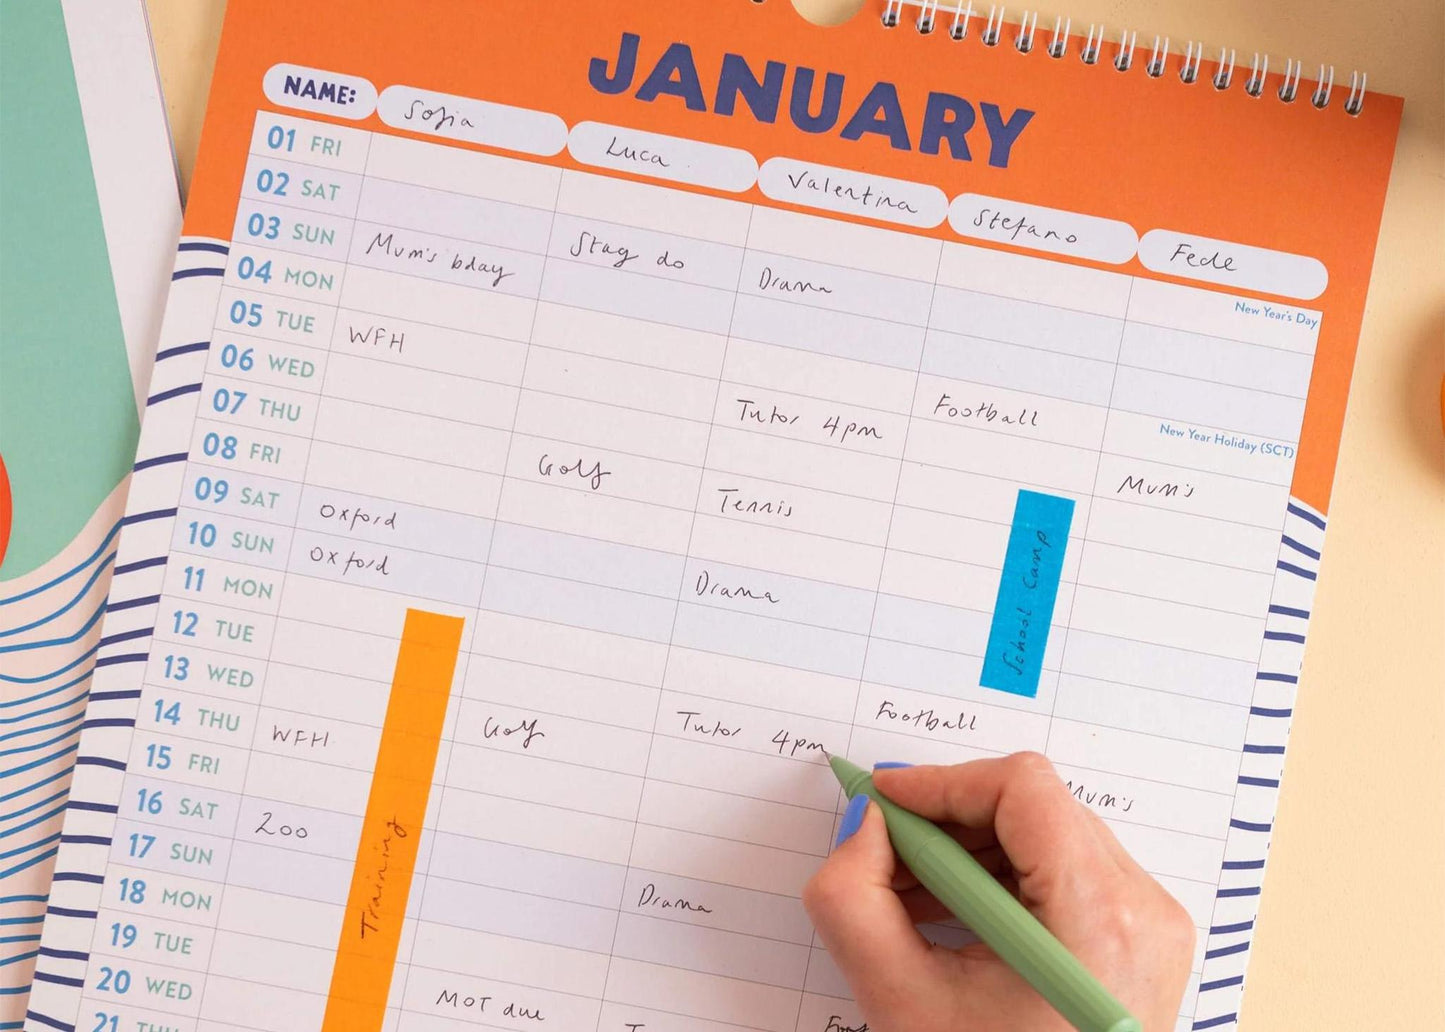 JANUARY
NAME: Sofia Luca Valentina Stefano Fede
01 FRI New Year's Day
02 SAT Stag do Drama
03 SUN Mum's bday
04 MON New Year Holiday (SCT)
05 TUE WFH Tutor 4pm Football
06 WED Mum's
07 THU Golf Tennis
08 FRI
09 SAT Oxford Drama
10 SUN Oxford
School Camp
11 MON
12 TUE Tutor 4pm Football
13 WED Golf
14 THU WFH Mum's
15 FRI
16 SAT Zoo Drama
17 SUN
Training
18 MON
19 TUE MOT due
20 WED
21 THU